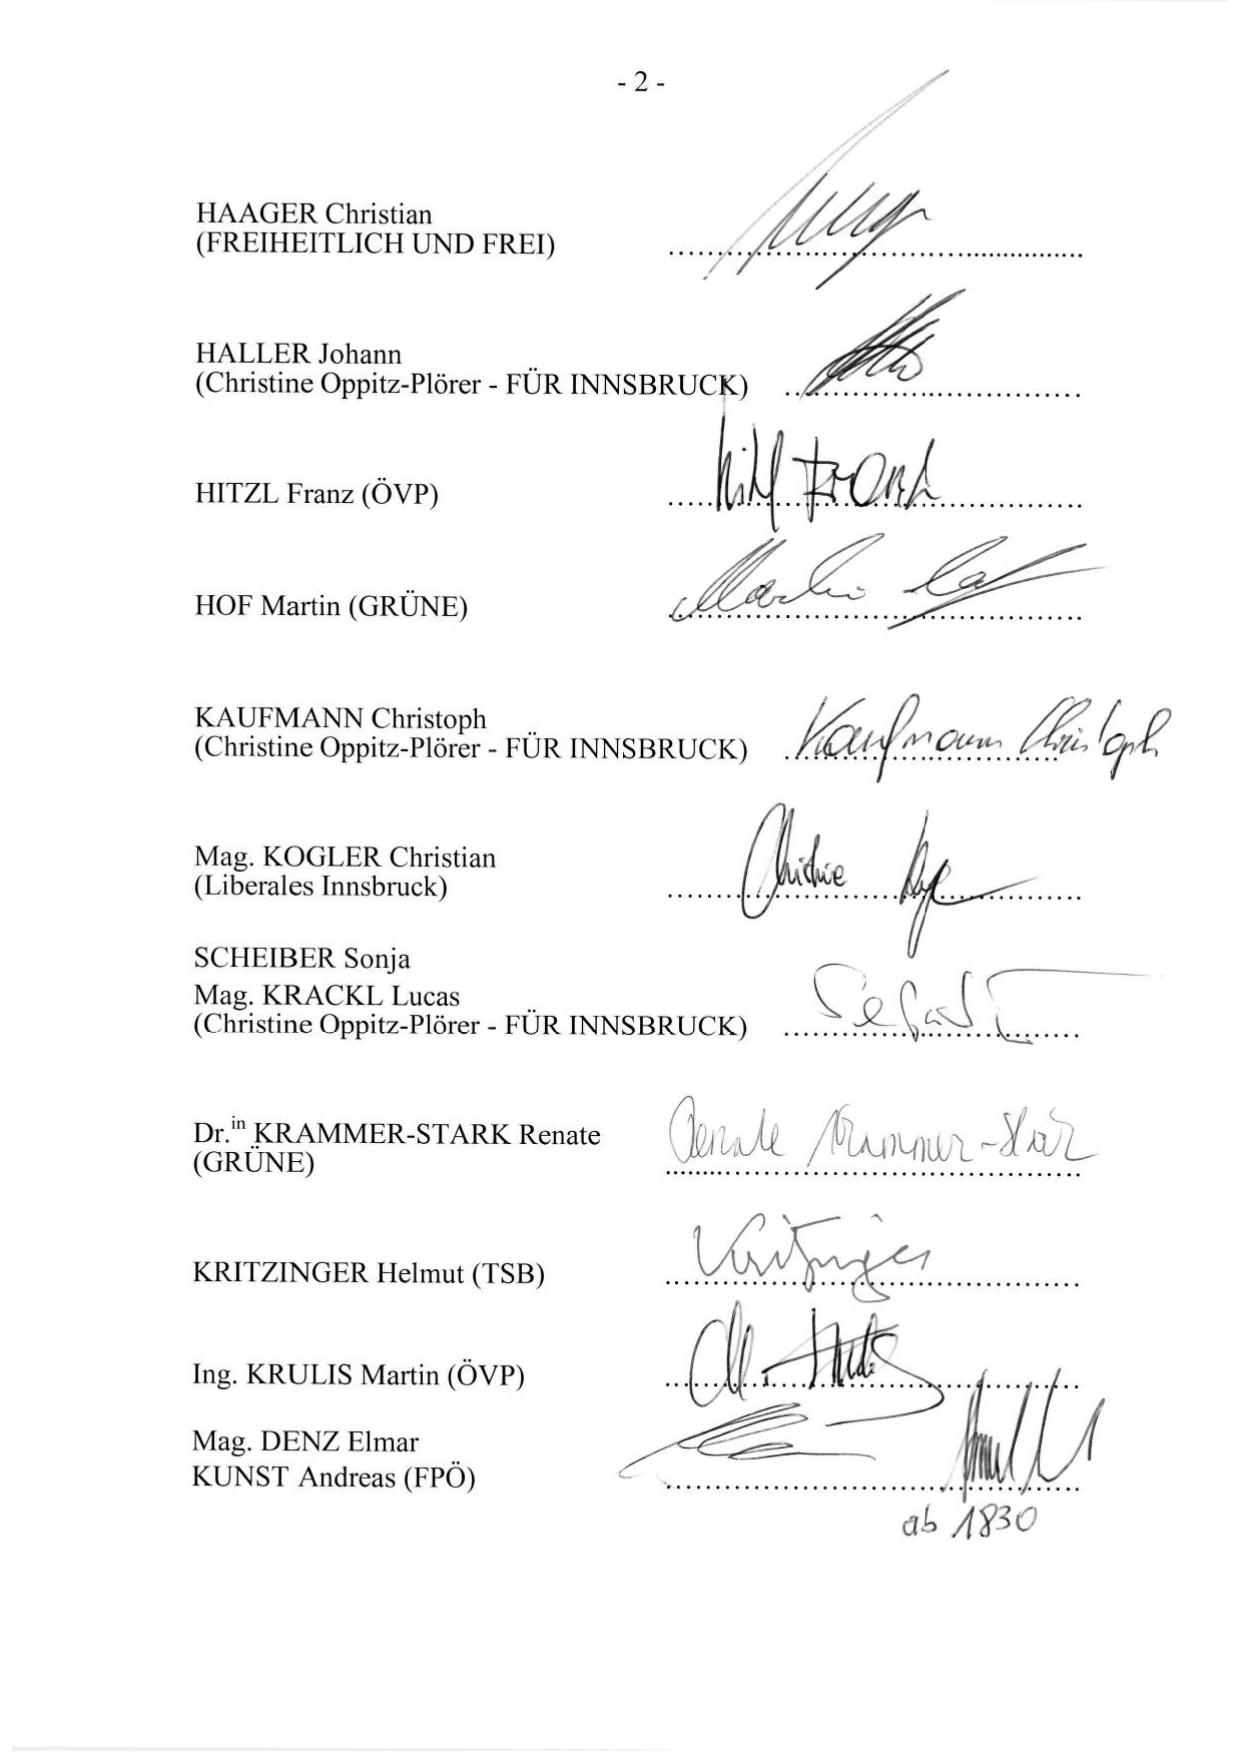 - 2 -
HAAGER Christian
(FREIHEITLICH UND FREI)
HALLER Johann
(Christine Oppitz-Plörer - FÜR INNSBRUCK)
HITZL Franz (ÖVP)
HOF Martin (GRÜNE)
Martin
KAUFMANN Christoph
(Christine Oppitz-Plörer - FÜR INNSBRUCK)
Kaufmann Christoph
Mag. KOGLER Christian
(Liberales Innsbruck)
SCHEIBER Sonja
Mag. KRACKL Lucas
(Christine Oppitz-Plörer - FÜR INNSBRUCK)
Dr.in KRAMMER-STARK Renate
(GRÜNE)
Renate Krammer-Stark
KRITZINGER Helmut (TSB)
Kritzinger
Ing. KRULIS Martin (ÖVP)
Mag. DENZ Elmar
KUNST Andreas (FPÖ)
ab 1830